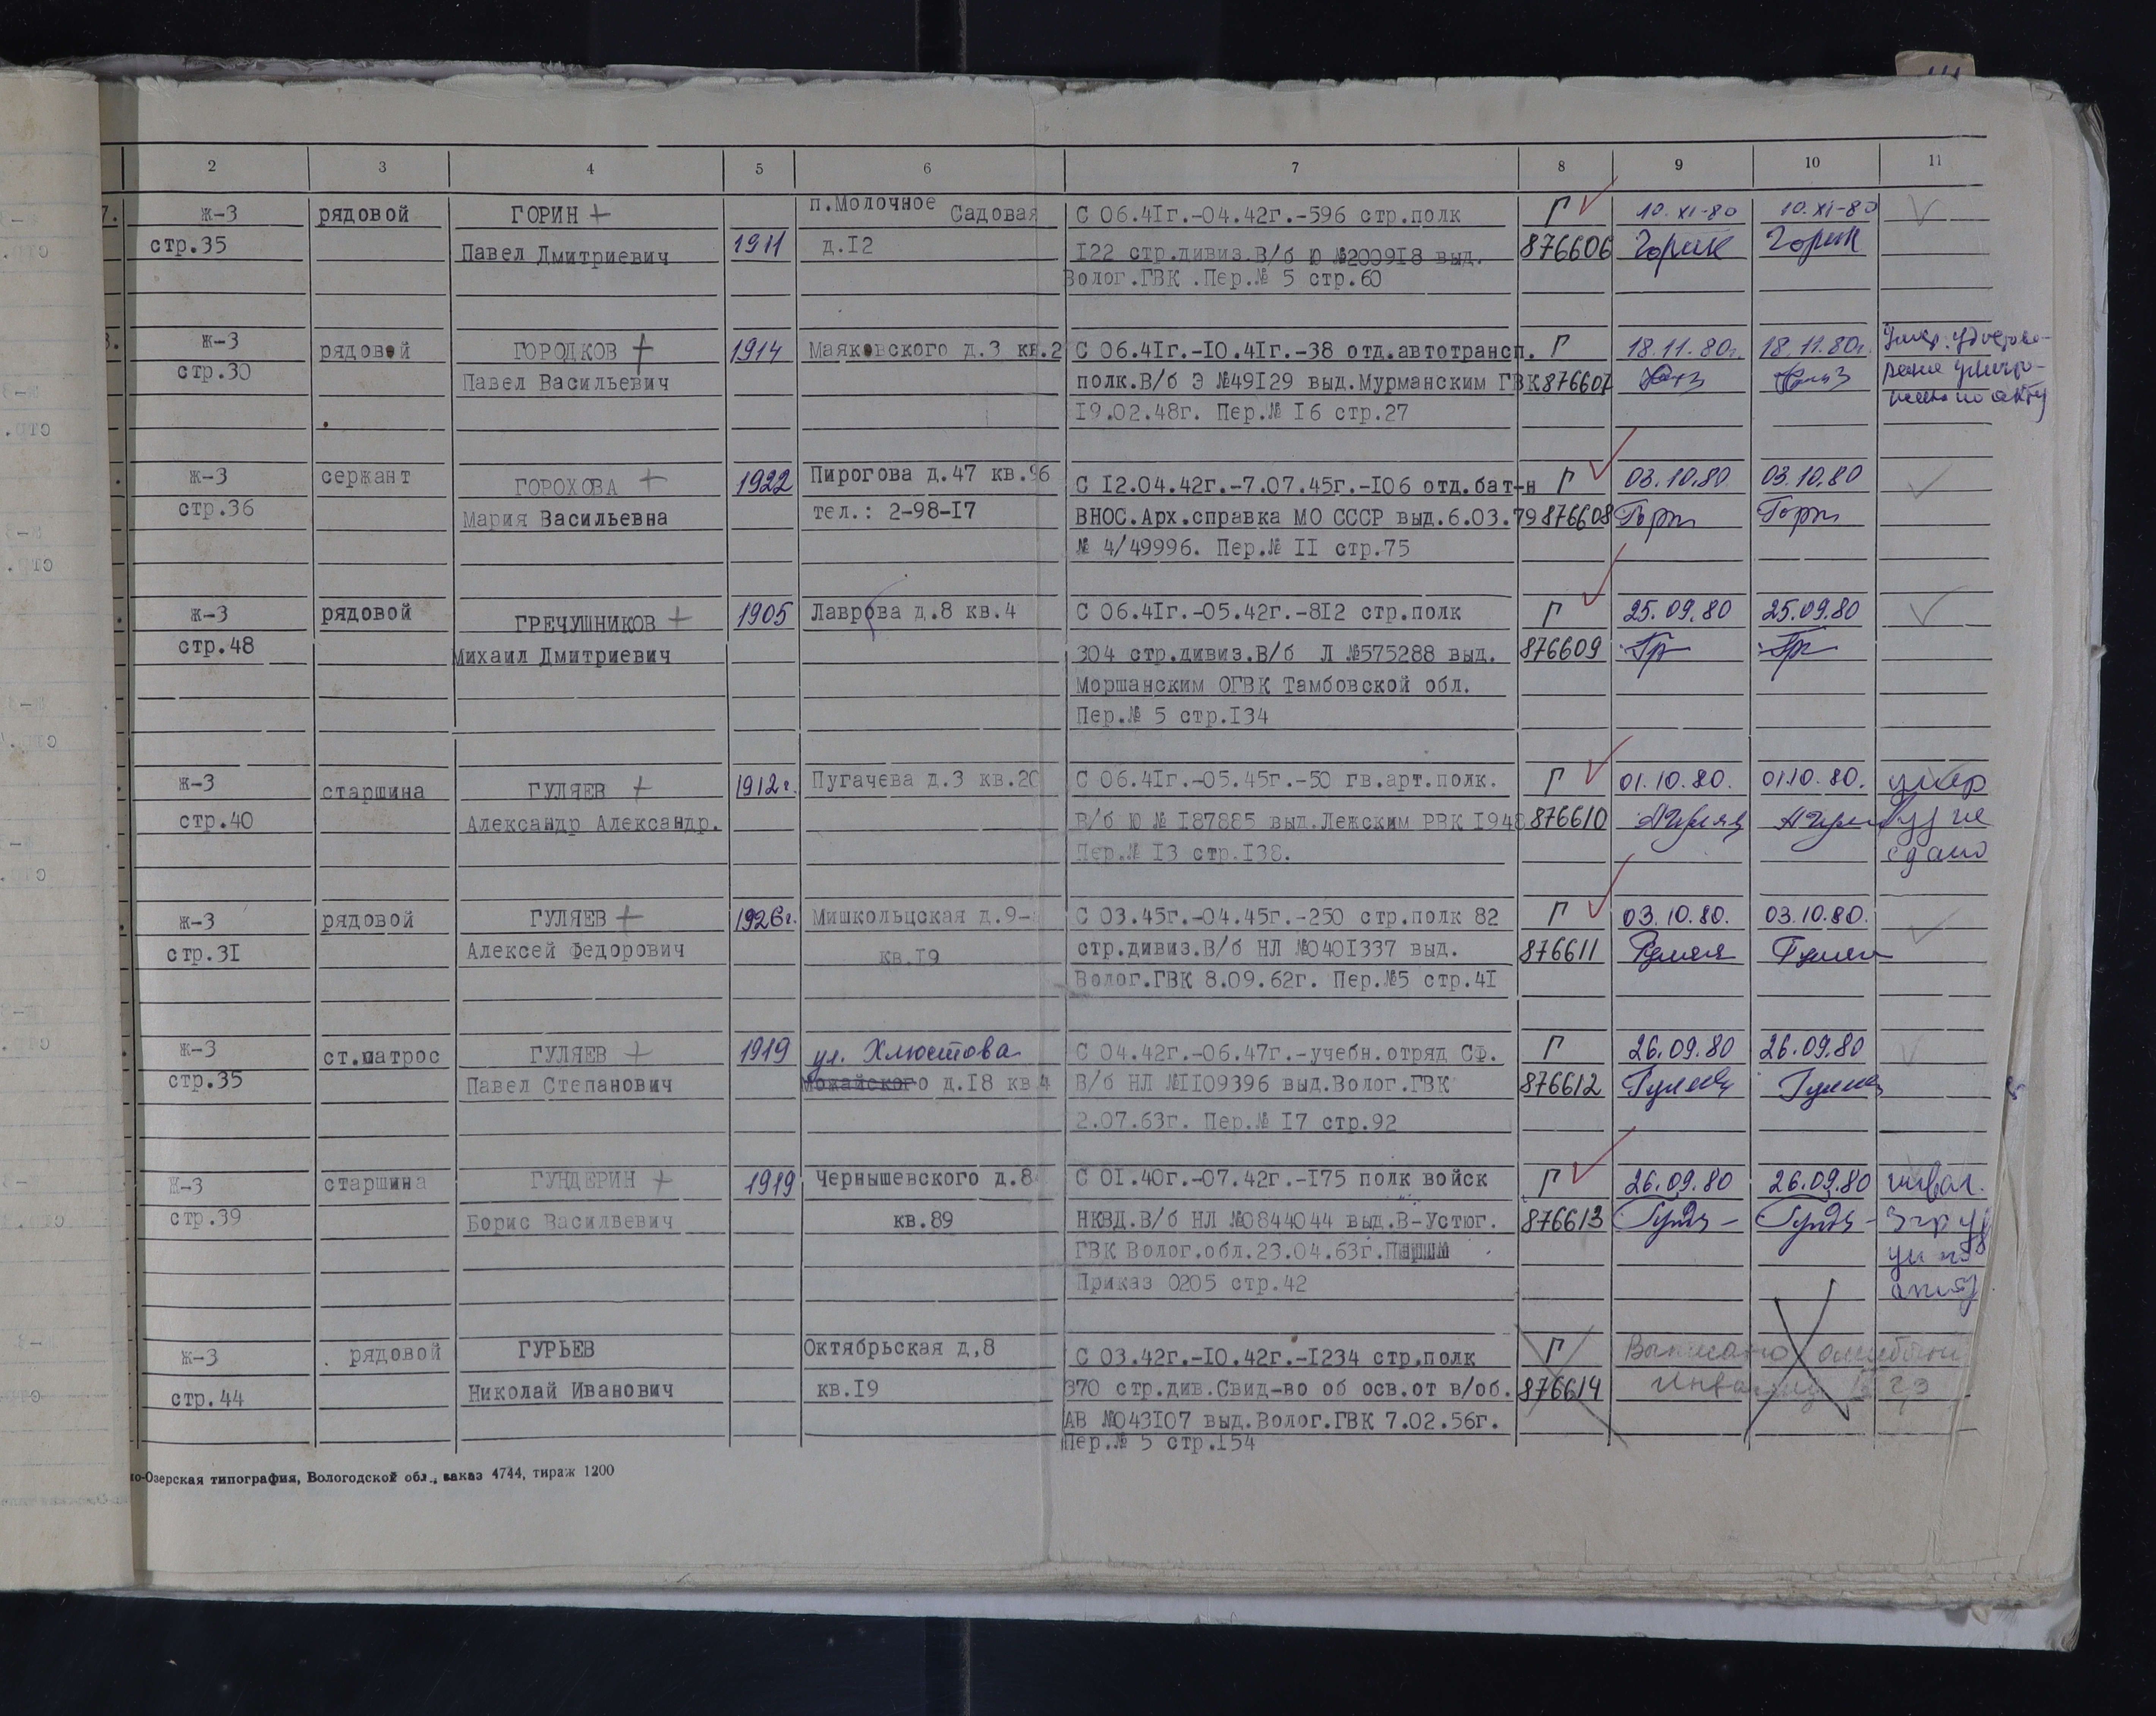 2 3 4 5 6 7 8 9 10 11
7. ж-3 рядовой ГОРИН + п.Молочное Садовая С 06.41г.-04.42г.-596 стр.полк Г 10.XI-80 10.XI-80
стр.35 Павел Дмитриевич 1911 д.12 122 стр.дивиз.В/б Ю №200918 выд. 876606 Горин Горин
Волог.ГВК .Пер.№ 5 стр.60
8. ж-3 рядовой ГОРОДКОВ + 1914 Маяковского д.3 кв.2 С 06.41г.-10.41г.-38 отд.автотрансп. Г 18.11.80г. 18.11.80г. Умер. Удостове-
стр.30 Павел Васильевич полк.В/б Э №49129 выд.Мурманским ГВК 876607 рение уничто-
19.02.48г. Пер.№ 16 стр.27 жено по акту
ж-3 сержант ГОРОХОВА + 1922 Пирогова д.47 кв.96 С 12.04.42г.-7.07.45г.-106 отд.бат-н Г 03.10.80 03.10.80
стр.36 Мария Васильевна тел.: 2-98-17 ВНОС.Арх.справка МО СССР выд.6.03.79 876608
№ 4/49996. Пер.№ 11 стр.75
ж-3 рядовой ГРЕЧУШНИКОВ + 1905 Лаврова д.8 кв.4 С 06.41г.-05.42г.-812 стр.полк Г 25.09.80 25.09.80
стр.48 Михаил Дмитриевич 304 стр.дивиз.В/б Л №575288 выд. 876609
Моршанским ОГВК Тамбовской обл.
Пер.№ 5 стр.134
ж-3 старшина ГУЛЯЕВ + 1912г. Пугачева д.3 кв.20 С 06.41г.-05.45г.-50 гв.арт.полк. Г 01.10.80. 01.10.80. умер
стр.40 Александр Александр. В/б Ю № 187885 выд.Лежским РВК 1948 876610 не
Пер.№ 13 стр.138. сдано
ж-3 рядовой ГУЛЯЕВ + 1926г. Мишкольцская д.9- С 03.45г.-04.45г.-250 стр.полк 82 Г 03.10.80. 03.10.80.
стр.31 Алексей Федорович кв.19 стр.дивиз.В/б НЛ №0401337 выд. 876611
Волог.ГВК 8.09.62г. Пер.№5 стр.41
ж-3 ст.матрос ГУЛЯЕВ + 1919 ул. Хлюстова С 04.42г.-06.47г.-учебн.отряд СФ. Г 26.09.80 26.09.80
стр.35 Павел Степанович Можайского д.18 кв 4 В/б НЛ №1109396 выд.Волог.ГВК 876612
2.07.63г. Пер.№ 17 стр.92
ж-3 старшина ГУНДЕРИН + 1919 Чернышевского д.8 С 01.40г.-07.42г.-175 полк войск Г 26.09.80 26.09.80 инвал.
стр.39 Борис Василвевич кв.89 НКВД.В/б НЛ №0844044 выд.В-Устюг. 876613
ГВК Волог.обл.23.04.63г.
Приказ 0205 стр.42
ж-3 рядовой ГУРЬЕВ Октябрьская д,8 С 03.42г.-10.42г.-1234 стр.полк Г Выписано ошибочно
стр.44 Николай Иванович кв.19 370 стр.див.Свид-во об осв.от в/об. 876614
АВ №043107 выд.Волог.ГВК 7.02.56г.
Пер.№ 5 стр.154
но-Озерская типография, Вологодской обл., заказ 4744, тираж 1200